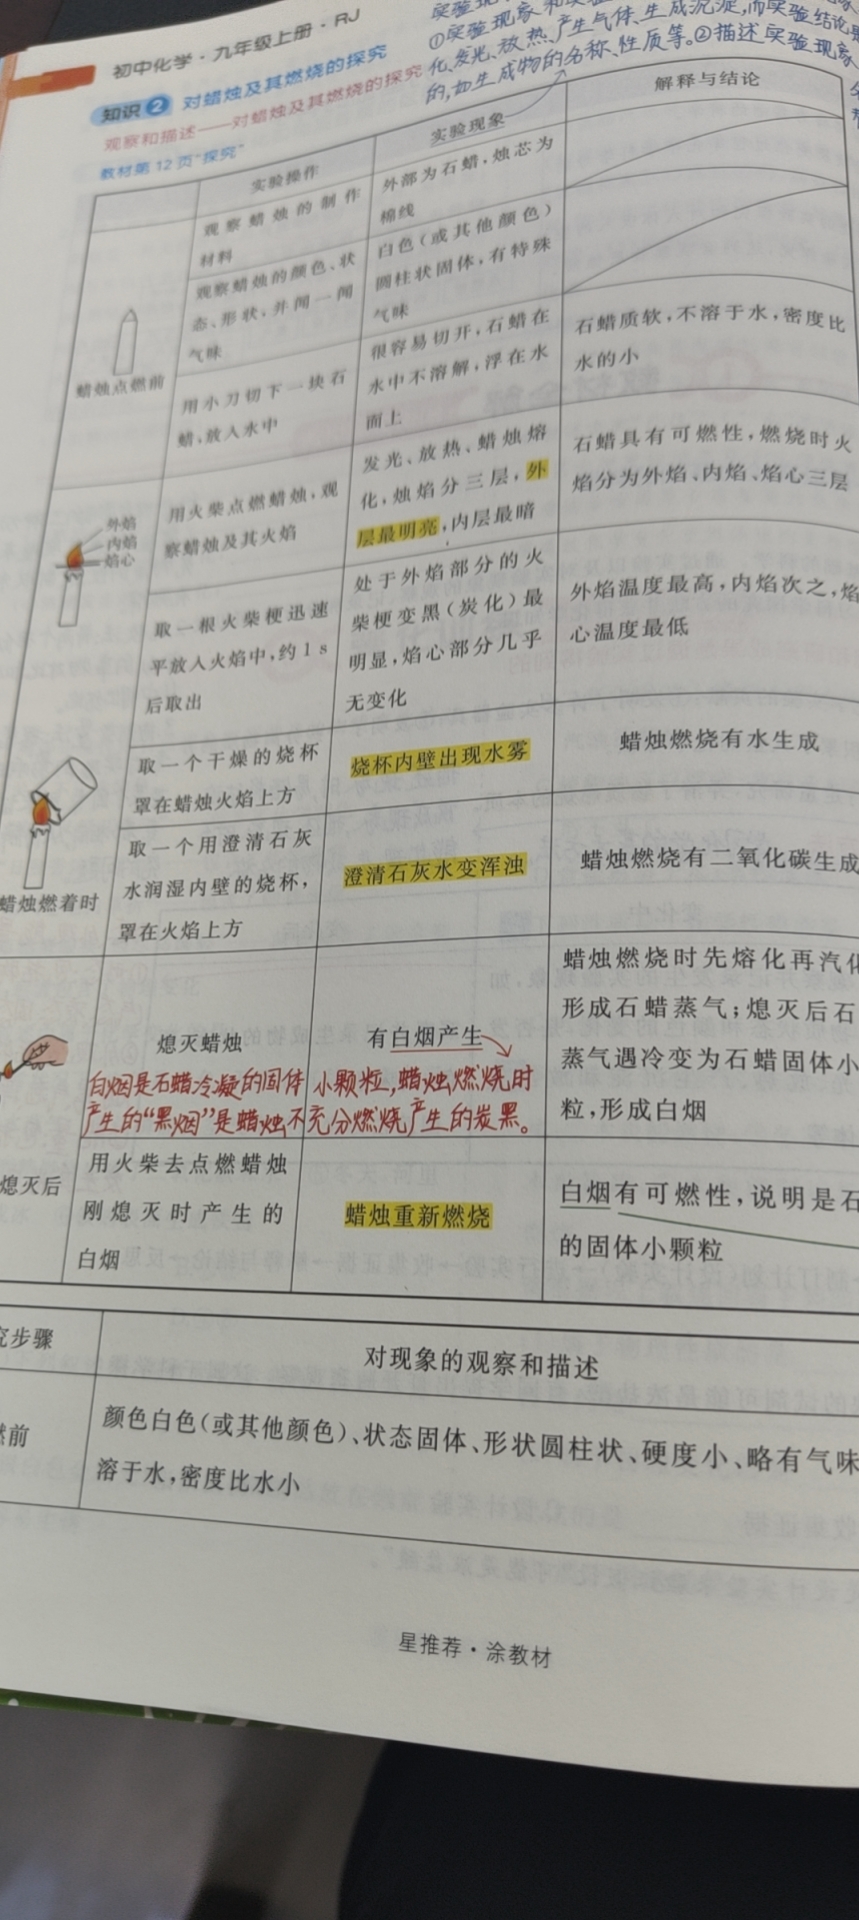 初中化学·九年级上册·RJ
①实验现象和实
化、发光、放热、产生气体、生成沉淀,而实验结论是
的,如生成物的名称、性质等。②描述实验现象
知识2 对蜡烛及其燃烧的探究
观察和描述——对蜡烛及其燃烧的探究
教材第12页“探究”
实验操作
实验现象
解释与结论
蜡烛点燃前
观察蜡烛的制作
材料
外部为石蜡,烛芯为
棉线
观察蜡烛的颜色、状
态、形状,并闻一闻
气味
白色(或其他颜色)
圆柱状固体,有特殊
气味
用小刀切下一块石
蜡,放入水中
很容易切开,石蜡在
水中不溶解,浮在水
面上
石蜡质软,不溶于水,密度比
水的小
外焰
内焰
焰心
用火柴点燃蜡烛,观
察蜡烛及其火焰
发光、放热、蜡烛熔
化,烛焰分三层,外
层最明亮,内层最暗
石蜡具有可燃性,燃烧时火
焰分为外焰、内焰、焰心三层
取一根火柴梗迅速
平放入火焰中,约1 s
后取出
处于外焰部分的火
柴梗变黑(炭化)最
明显,焰心部分几乎
无变化
外焰温度最高,内焰次之,焰
心温度最低
取一个干燥的烧杯
罩在蜡烛火焰上方
烧杯内壁出现水雾
蜡烛燃烧有水生成
蜡烛燃着时
取一个用澄清石灰
水润湿内壁的烧杯,
罩在火焰上方
澄清石灰水变浑浊
蜡烛燃烧有二氧化碳生成
熄灭蜡烛
有白烟产生
蜡烛燃烧时先熔化再汽化
形成石蜡蒸气;熄灭后石
蒸气遇冷变为石蜡固体小
粒,形成白烟
白烟是石蜡冷凝的固体小颗粒,蜡烛燃烧时
产生的“黑烟”是蜡烛不充分燃烧产生的炭黑。
熄灭后
用火柴去点燃蜡烛
刚熄灭时产生的
白烟
蜡烛重新燃烧
白烟有可燃性,说明是石
的固体小颗粒
究步骤
对现象的观察和描述
燃前
颜色白色(或其他颜色)、状态固体、形状圆柱状、硬度小、略有气味
溶于水,密度比水小
星推荐·涂教材